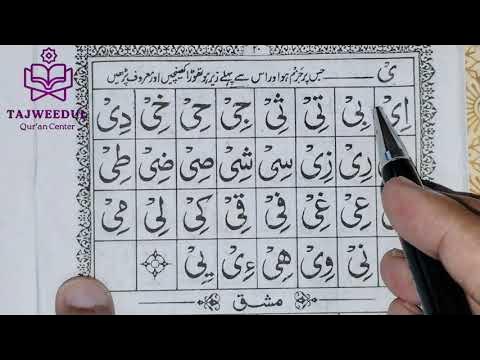 TAJWEEDUL
Qur'an Center
۲۰
یْ جس پر جزم ہو اور اس سے پہلے زیر ہو تھوڑا کھینچیں اور معروف پڑھیں
اِیْ بِیْ تِیْ ثِیْ جِیْ حِیْ خِیْ دِیْ
رِیْ زِیْ سِیْ شِیْ صِیْ ضِیْ طِیْ
عِیْ غِیْ فِیْ قِیْ کِیْ لِیْ مِیْ
نِیْ وِیْ هِیْ ءِیْ یِیْ
مشق